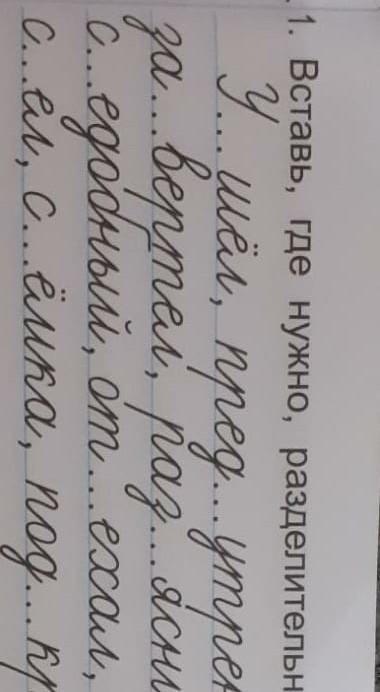 1. Вставь, где нужно, разделительн
У...шёл, пред...утрен
за...вертел, раз...ясни
с...едобный, от...ехал,
с...ел, с...ёмка, под...кр